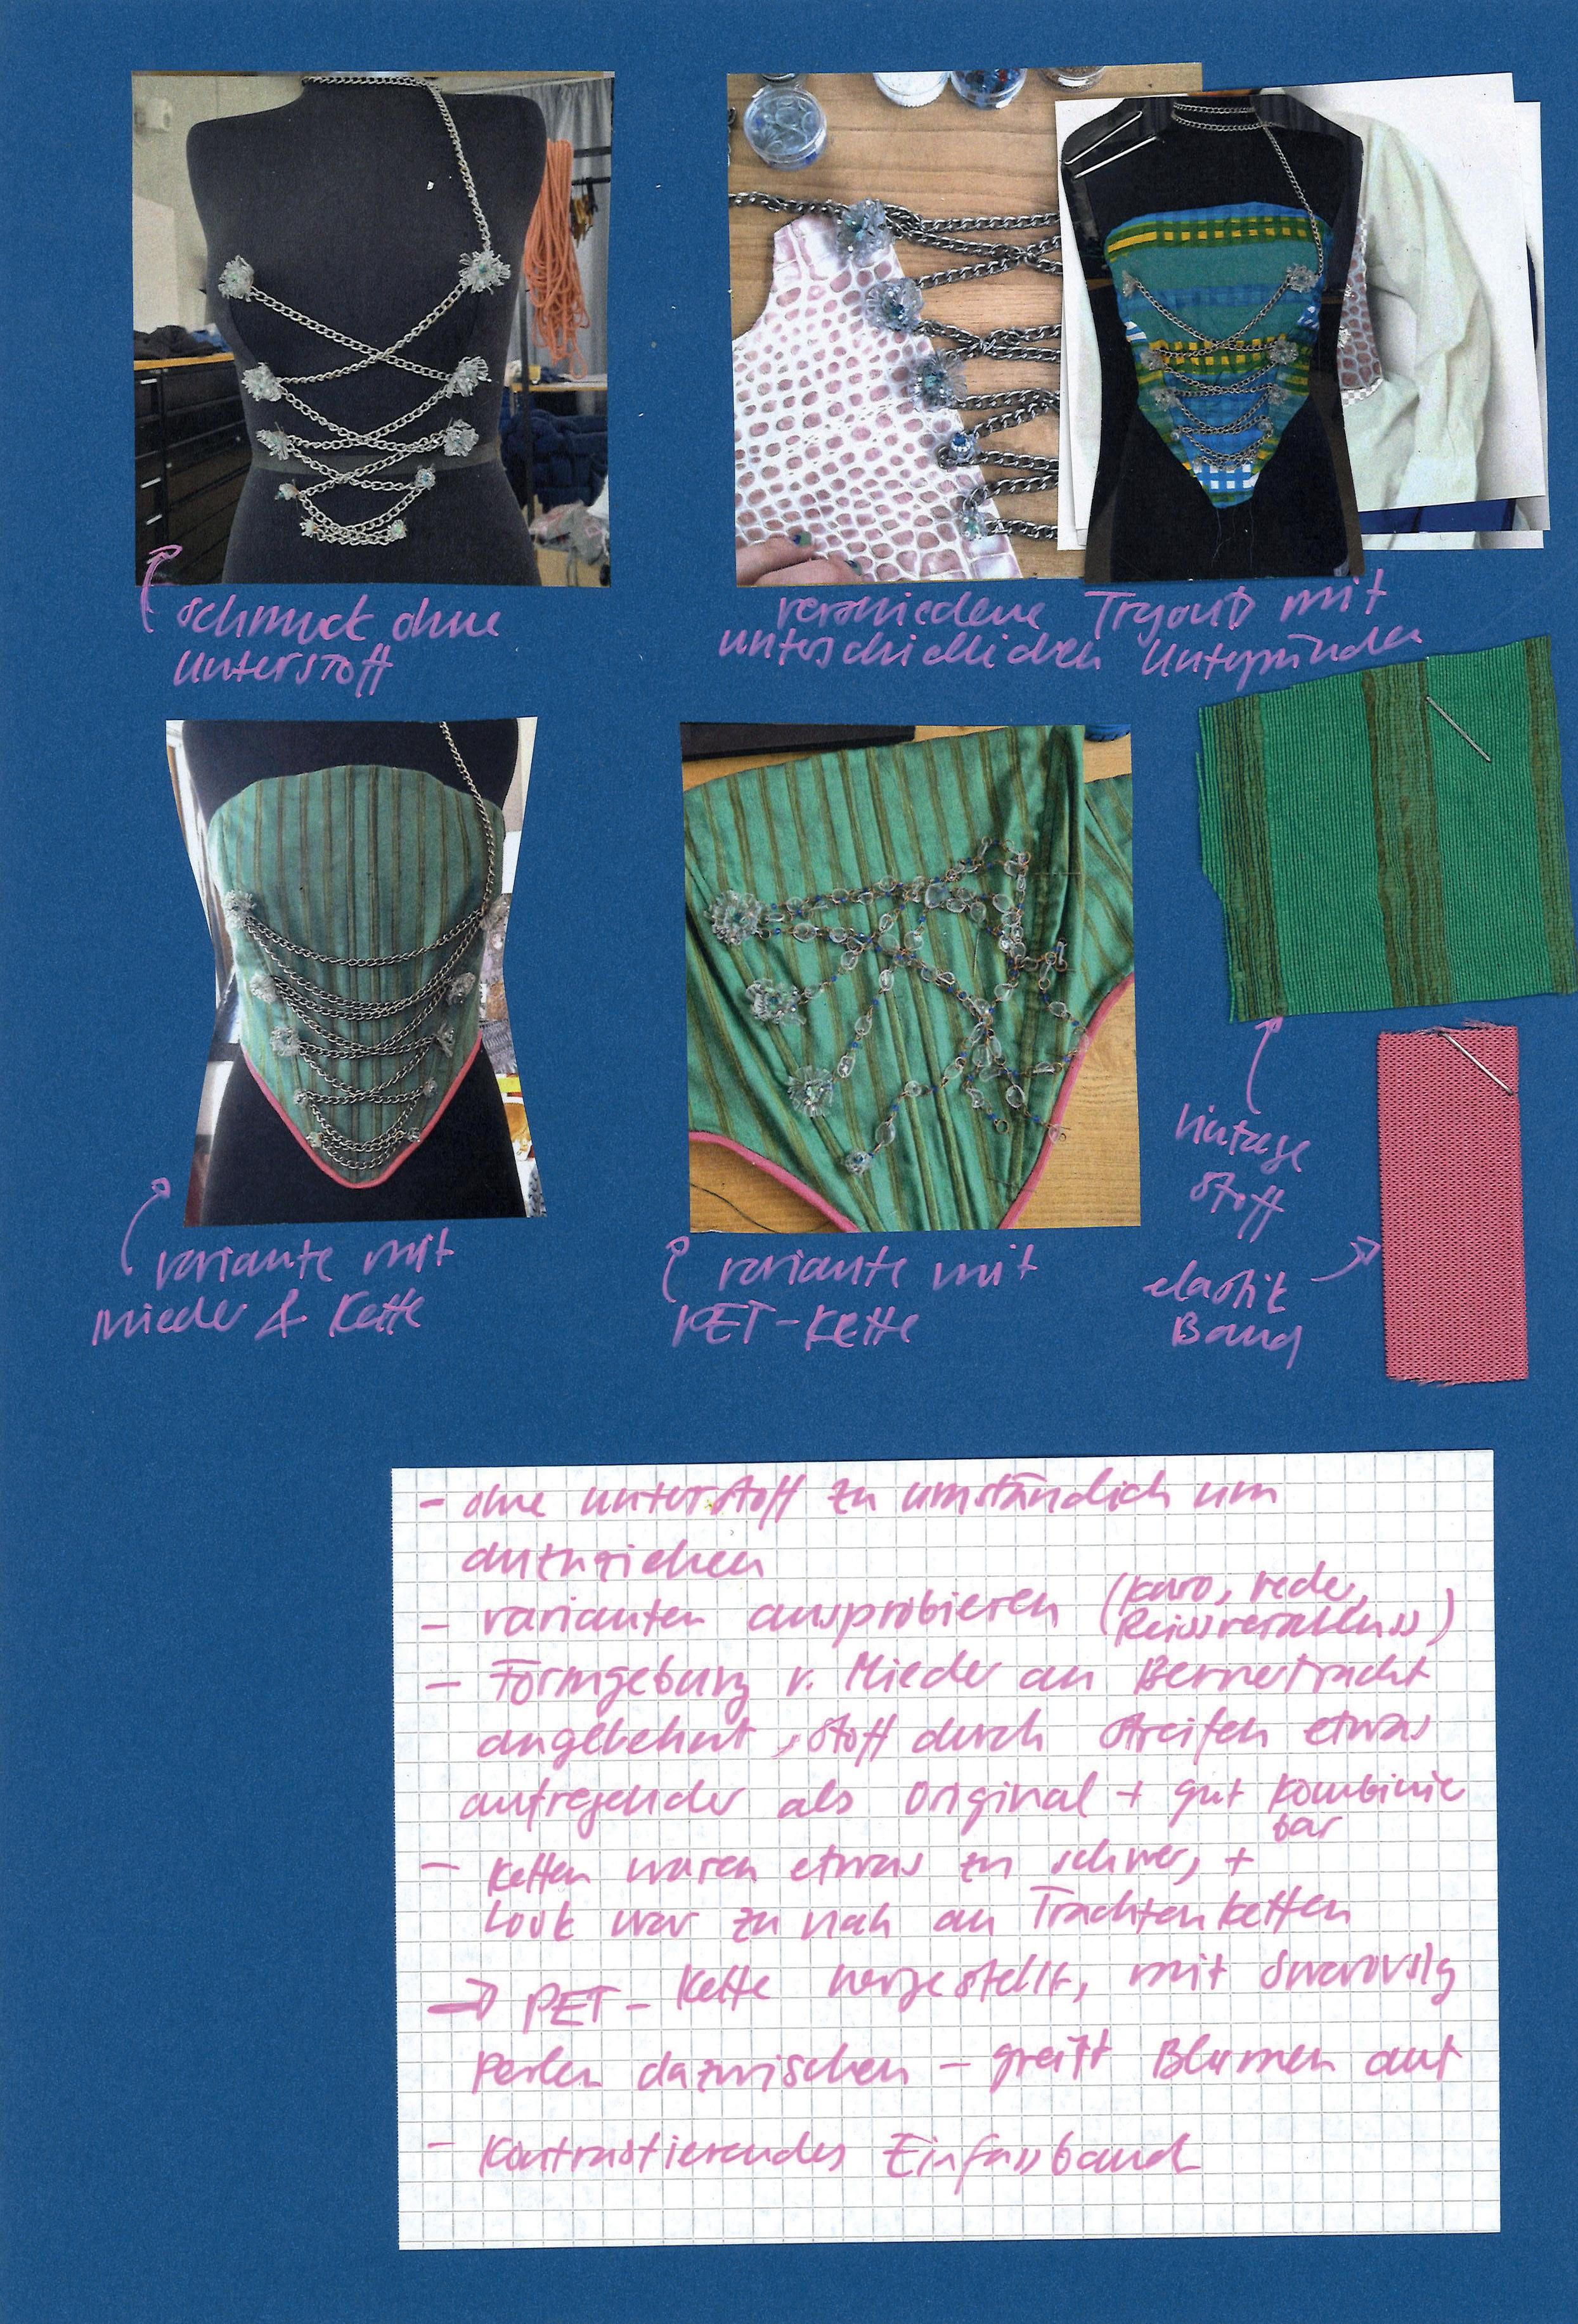 schmuck ohne
Unterstoff
verschiedene Tryouts mit
unterschiedlichen Untergründen
variante mit
mieder & Kette
variante mit
PET-Kette
vintage
stoff
elastik
Band
- ohne unterstoff zu umständlich um
anzuziehen
- varianten ausprobieren (karo,
Reissverschluss)
- Formgebung v. Mieder an Bernertracht
angelehnt, stoff durch streifen etwas
aufregender als Original + gut kombinier
bar
- ketten waren etwas zu schwer, +
Look war zu nah an Trachtenketten
→ PET-Kette hergestellt, mit Swarovski
Perlen dazwischen - greift Blumen auf
- kontrastierendes Einfassband